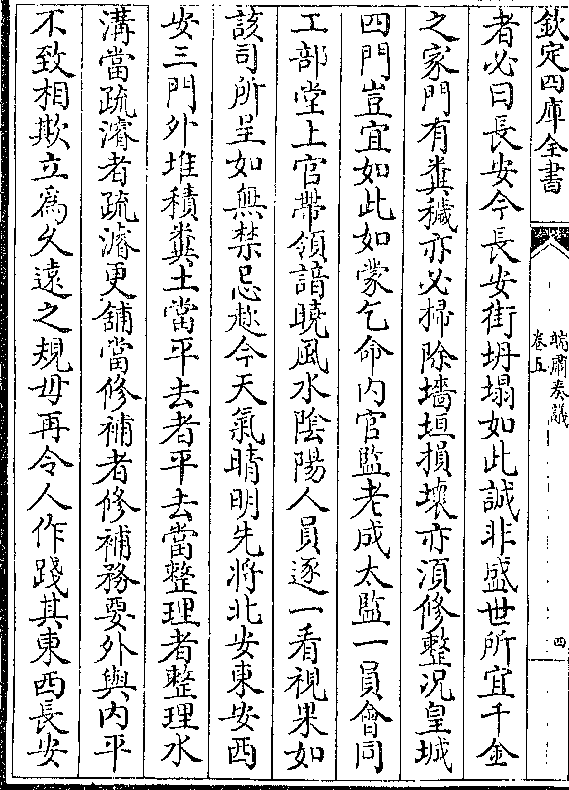 欽定四庫全書
端肅奏議
卷五
四
者必曰長安今長安街坍塌如此誠非盛世所宜千金
之家門有糞穢亦必掃除墻垣損壊亦湏修整况皇城
四門豈宜如此如蒙乞命内官監老成太監一員會同
工部堂上官帶領諳曉風水隂陽人員逐一看視果如
該司所呈如無禁忌趂今天氣晴明先将北安東安西
安三門外堆積糞土當平去者平去當整理者整理水
溝當疏濬者疏濬更舖當修補者修補務要外與内平
不致相欺立為久逺之規毋再令人作踐其東西長安